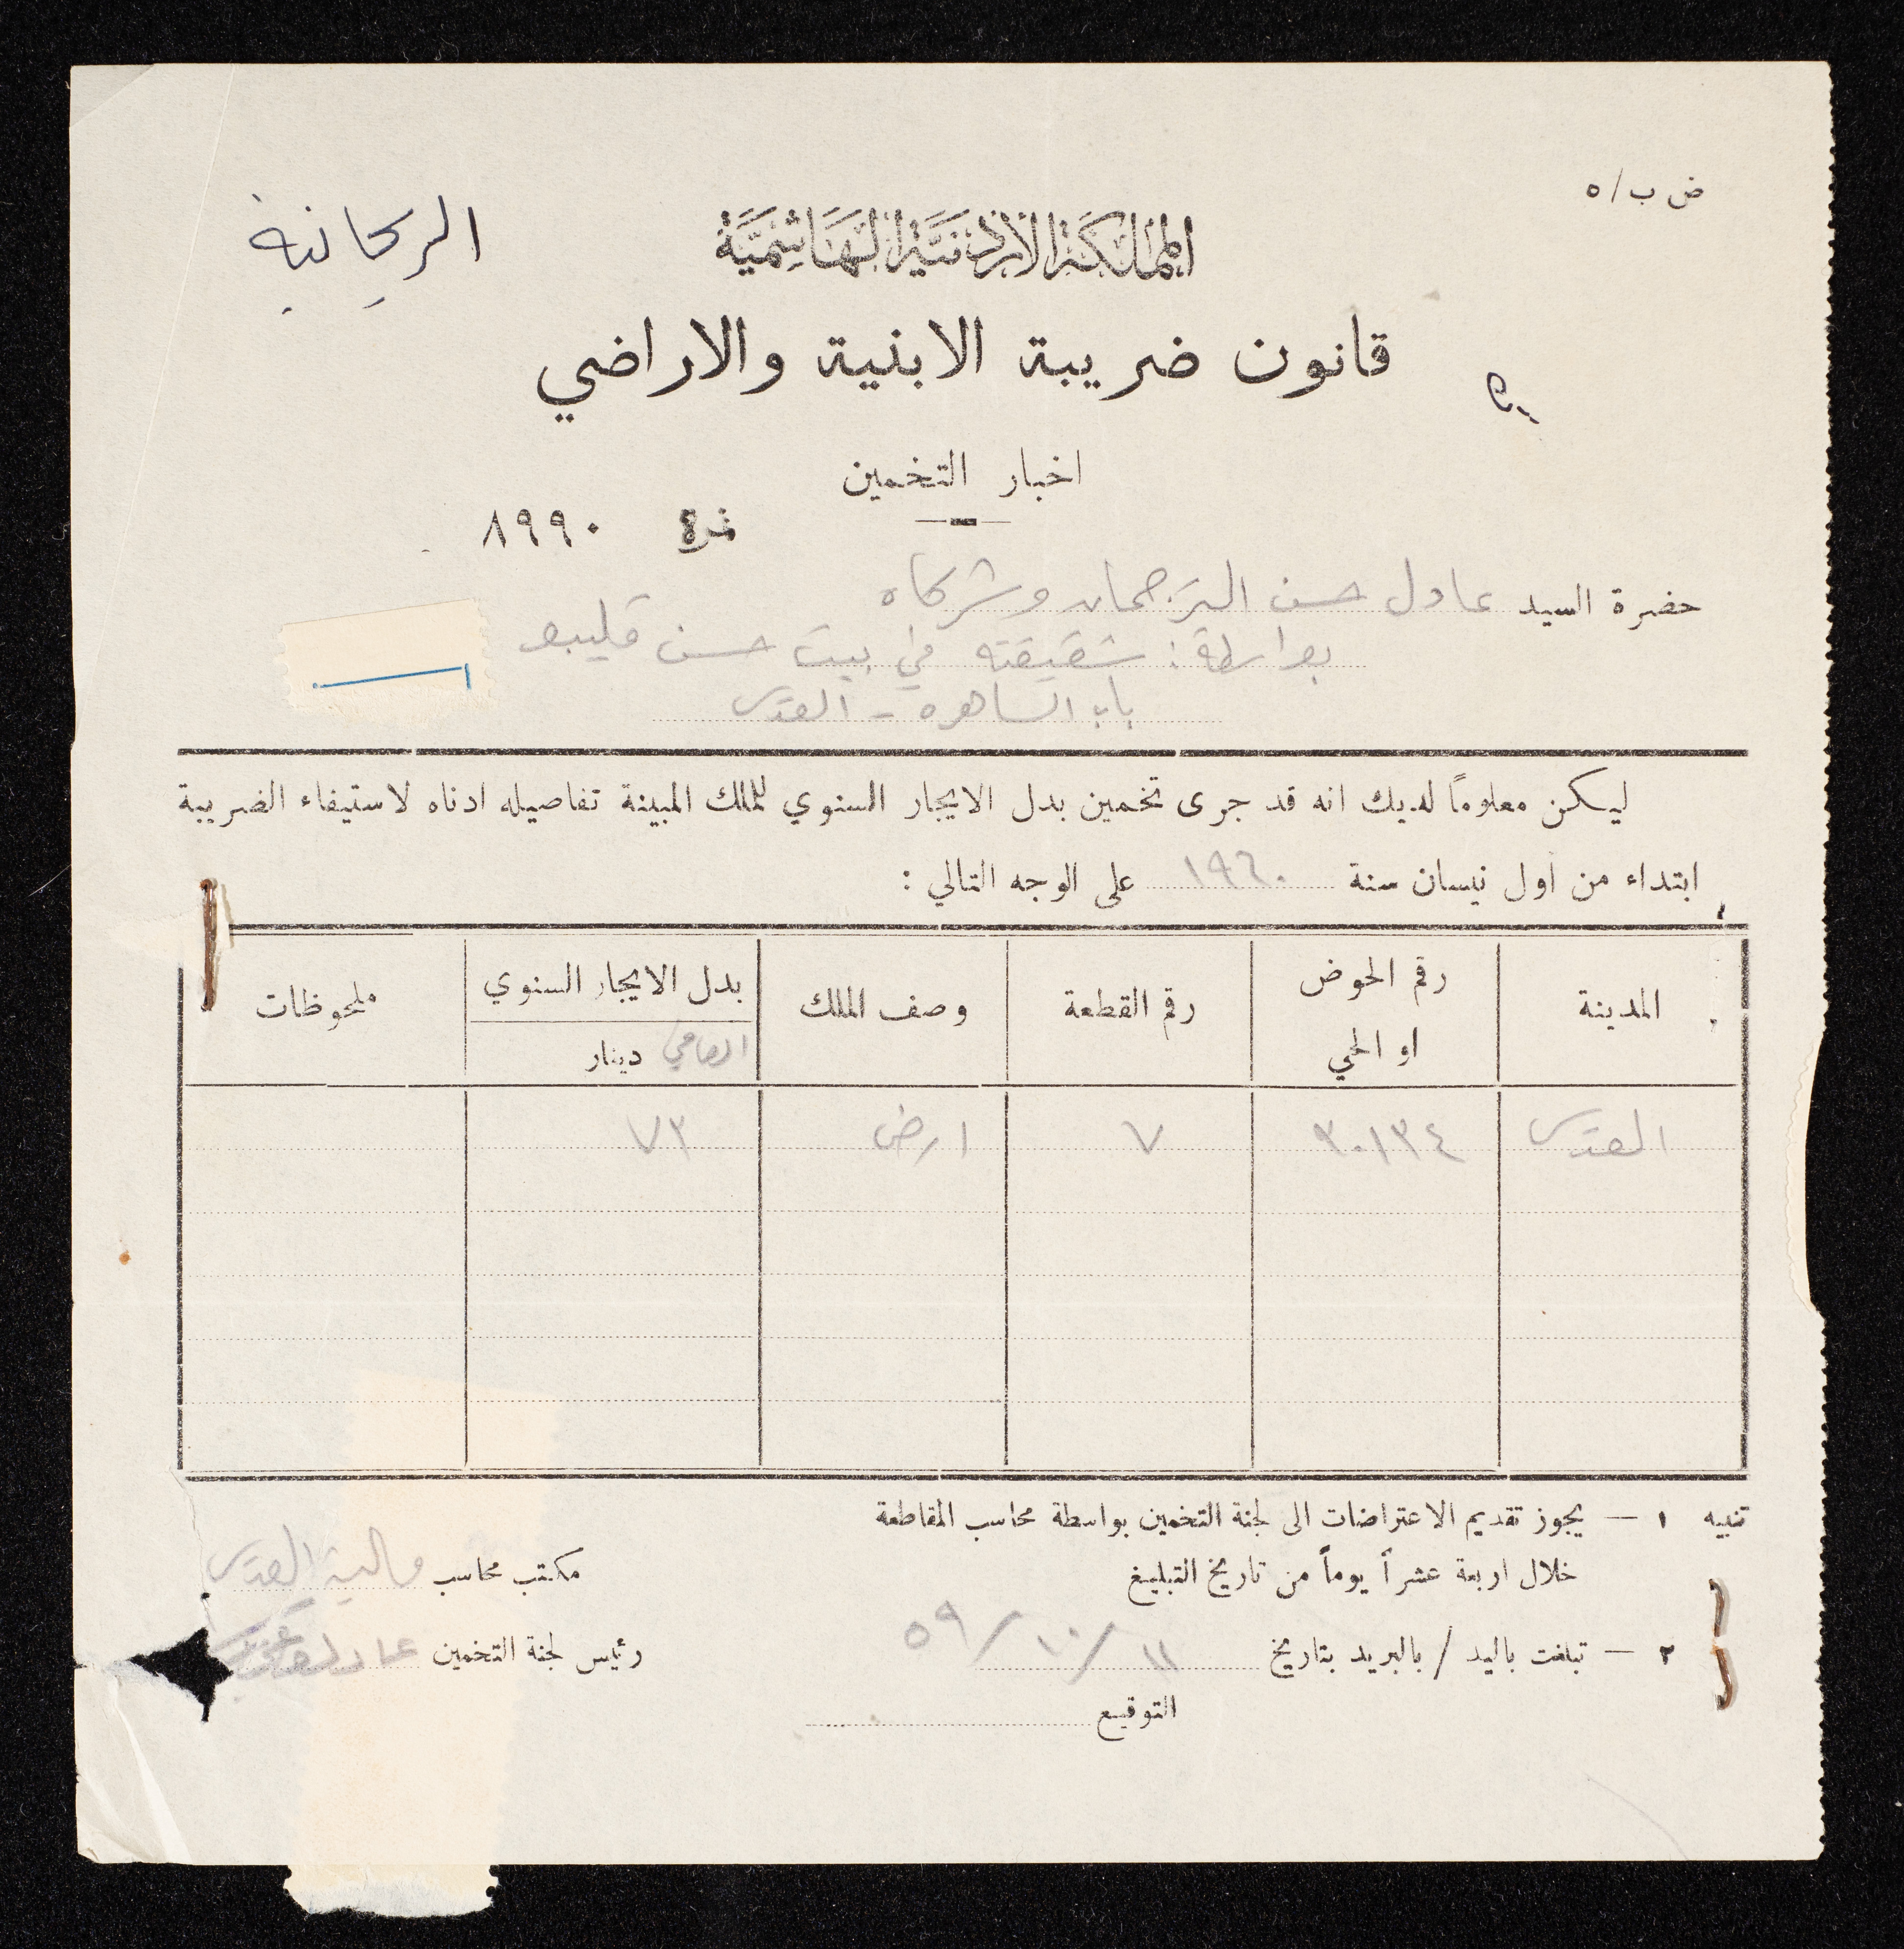 ض ب/٥
الريحانية
المملكة الاردنية الهاشمية
قانون ضريبة الابنية والاراضي
اخبار التخمين
نمرة ٨٩٩٠
حضرة السيد عادل حسن الترجمان وشركاه
بواسطة: شقيقته في بيت حسن قليبو
باب الساهرة - القدس
ليكن معلوماً لديك انه قد جرى تخمين بدل الايجار السنوي للملك المبينة تفاصيله ادناه لاستيفاء الضريبة
ابتداء من اول نيسان سنة ١٩٦٠ على الوجه التالي :
المدينة رقم الحوض او الحي رقم القطعة وصف الملك بدل الايجار السنوي الصافي دينار ملحوظات
القدس ٣٠١٣٤ ٧ ارض ٧٣
تنبيه ١ — يجوز تقديم الاعتراضات الى لجنة التخمين بواسطة محاسب المقاطعة
خلال اربعة عشر أ يوماً من تاريخ التبليغ
مكتب محاسب مالية القدس
٢ — تبلغت باليد / بالبريد بتاريخ ١١/١٠/٥٩
رئيس لجنة التخمين
التوقيع